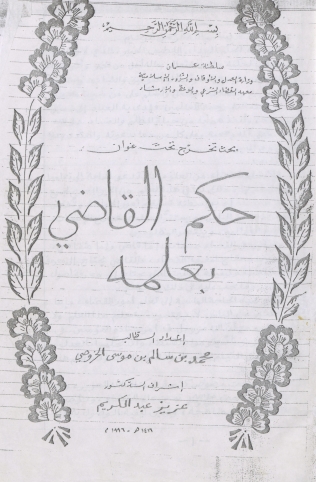 بسم الله الرحمن الرحيم
سلطنة عمان
وزارة العدل والأوقاف والشؤون الإسلامية
معهد القضاء الشرعي والوعظ والإرشاد
بحث تخرج تحت عنوان
حكم القاضي
بعلمه
إعداد الطالب
محمد بن سالم بن موسى الخروصي
إشراف الدكتور
عزيز عبد الكريم
١٤١٦هـ - ١٩٩٦م